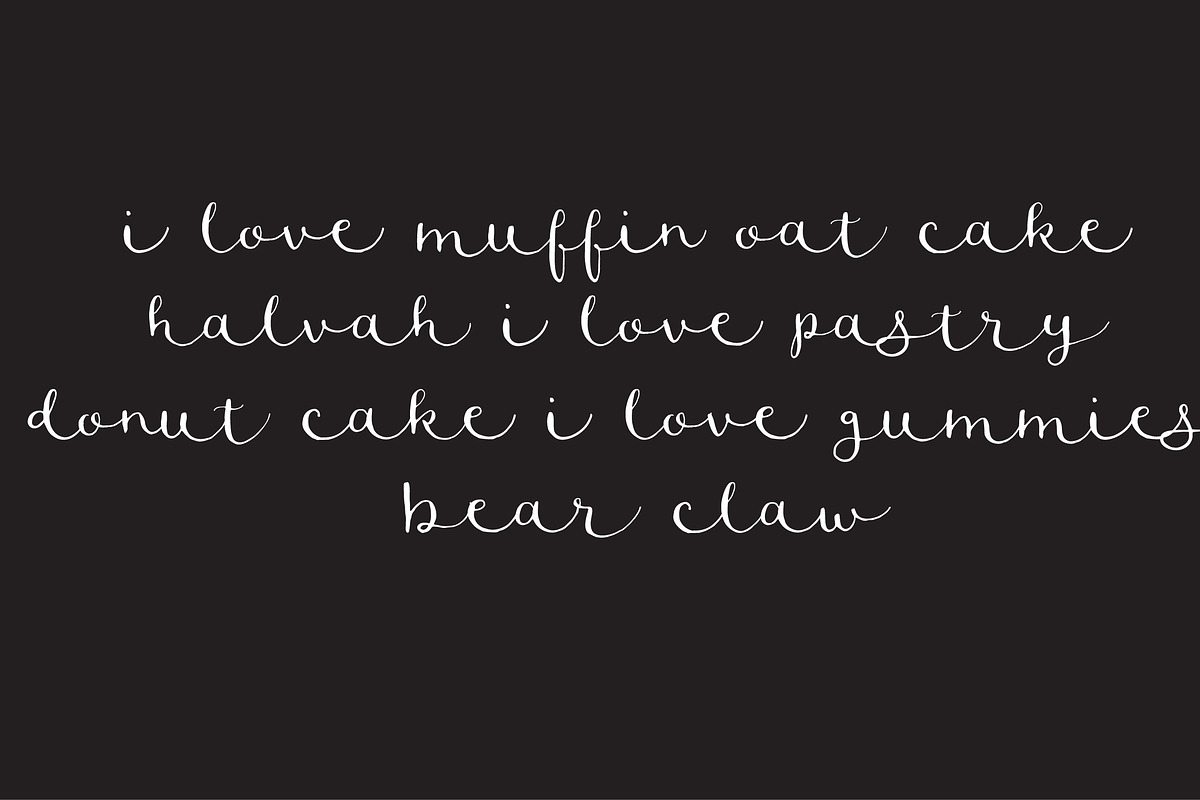 i love muffin oat cake
halvah i love pastry
donut cake i love gummies
bear claw